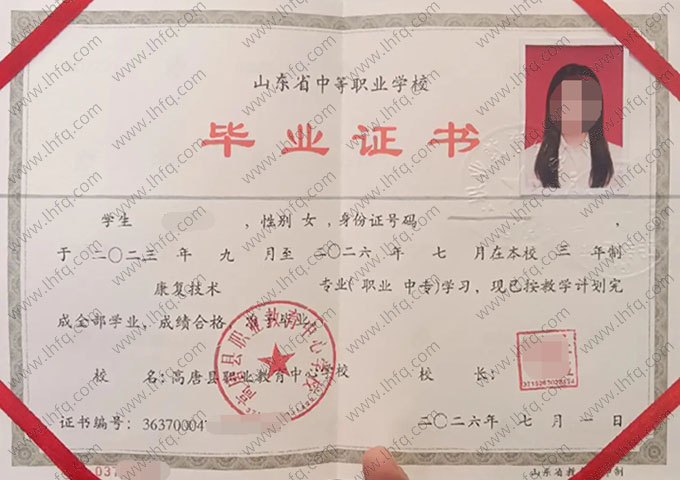 山东省中等职业学校
毕业证书
学生 ，性别 女 ，身份证号码 ，
于 二〇二三 年 九 月至 二〇二六 年 七 月在本校 三 年制
康复技术 专业( 职业 中专)学习，现已按教学计划完
成全部学业，成绩合格，准予毕业。
校 名：高唐县职业教育中心学校 校 长：
高唐县职业教育中心学校
证书编号：36370004 二〇二六 年 七 月 一 日
037
山东省教 制
www.lhfq.com